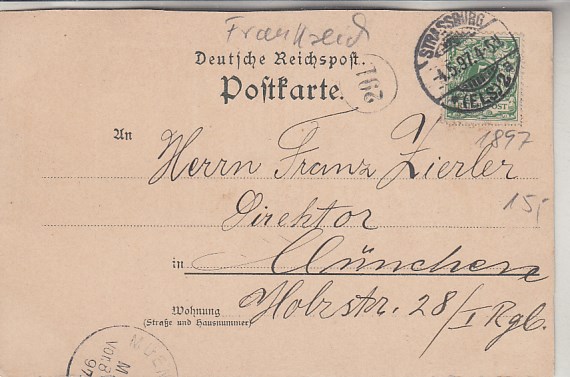 Frankreich
Deutsche Reichspost.
Postkarte.
STRASSBURG
4.5.97.4-5N.
(ELS.)2a
291
1897
An
Herrn Franz Zierler
15,-
Direktor
in München
Wohnung
(Straße und Hausnummer)
Holzstr. 28/I Rgb.
MUEN
VOR. 8
97